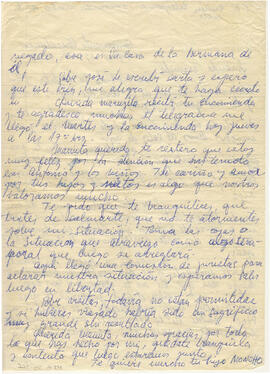 negado, esa es la casa de la hermana de
él.
José te escribí carta y espero
que esté bien, me alegra que te haya escrito
Querida mamita recibí tu encomienda
y te agradezco muchísimo el telegrama que
llegó el martes y la encomienda hoy jueves
a las
Mamita querida te reitero que estoy
muy feliz por la atención que has tenido
con Alfonso y los niños. Tu cariño y amor
por tus hijos y nietos es algo que nosotros
valoramos mucho.
Te pido que te tranquilices, que
trates de serenarte, que no te atormentes
sobre mi situación. Toma las cosas o
la situación que atravieso como algo tem-
poral que luego se arreglará
Aquí llegó una comisión de juristas para
aclarar nuestra situación y esperamos salir
luego en libertad.
Las visitas todavía no están permitidas
y si hubieras viajado habría sido un sacrificio
muy grande sin resultado.
Querida mamita muchas gracias por todo
lo que has hecho por mí, quédate tranquila
y contenta que luego estaremos juntos
te quiere mucho tu hijo MONCHO